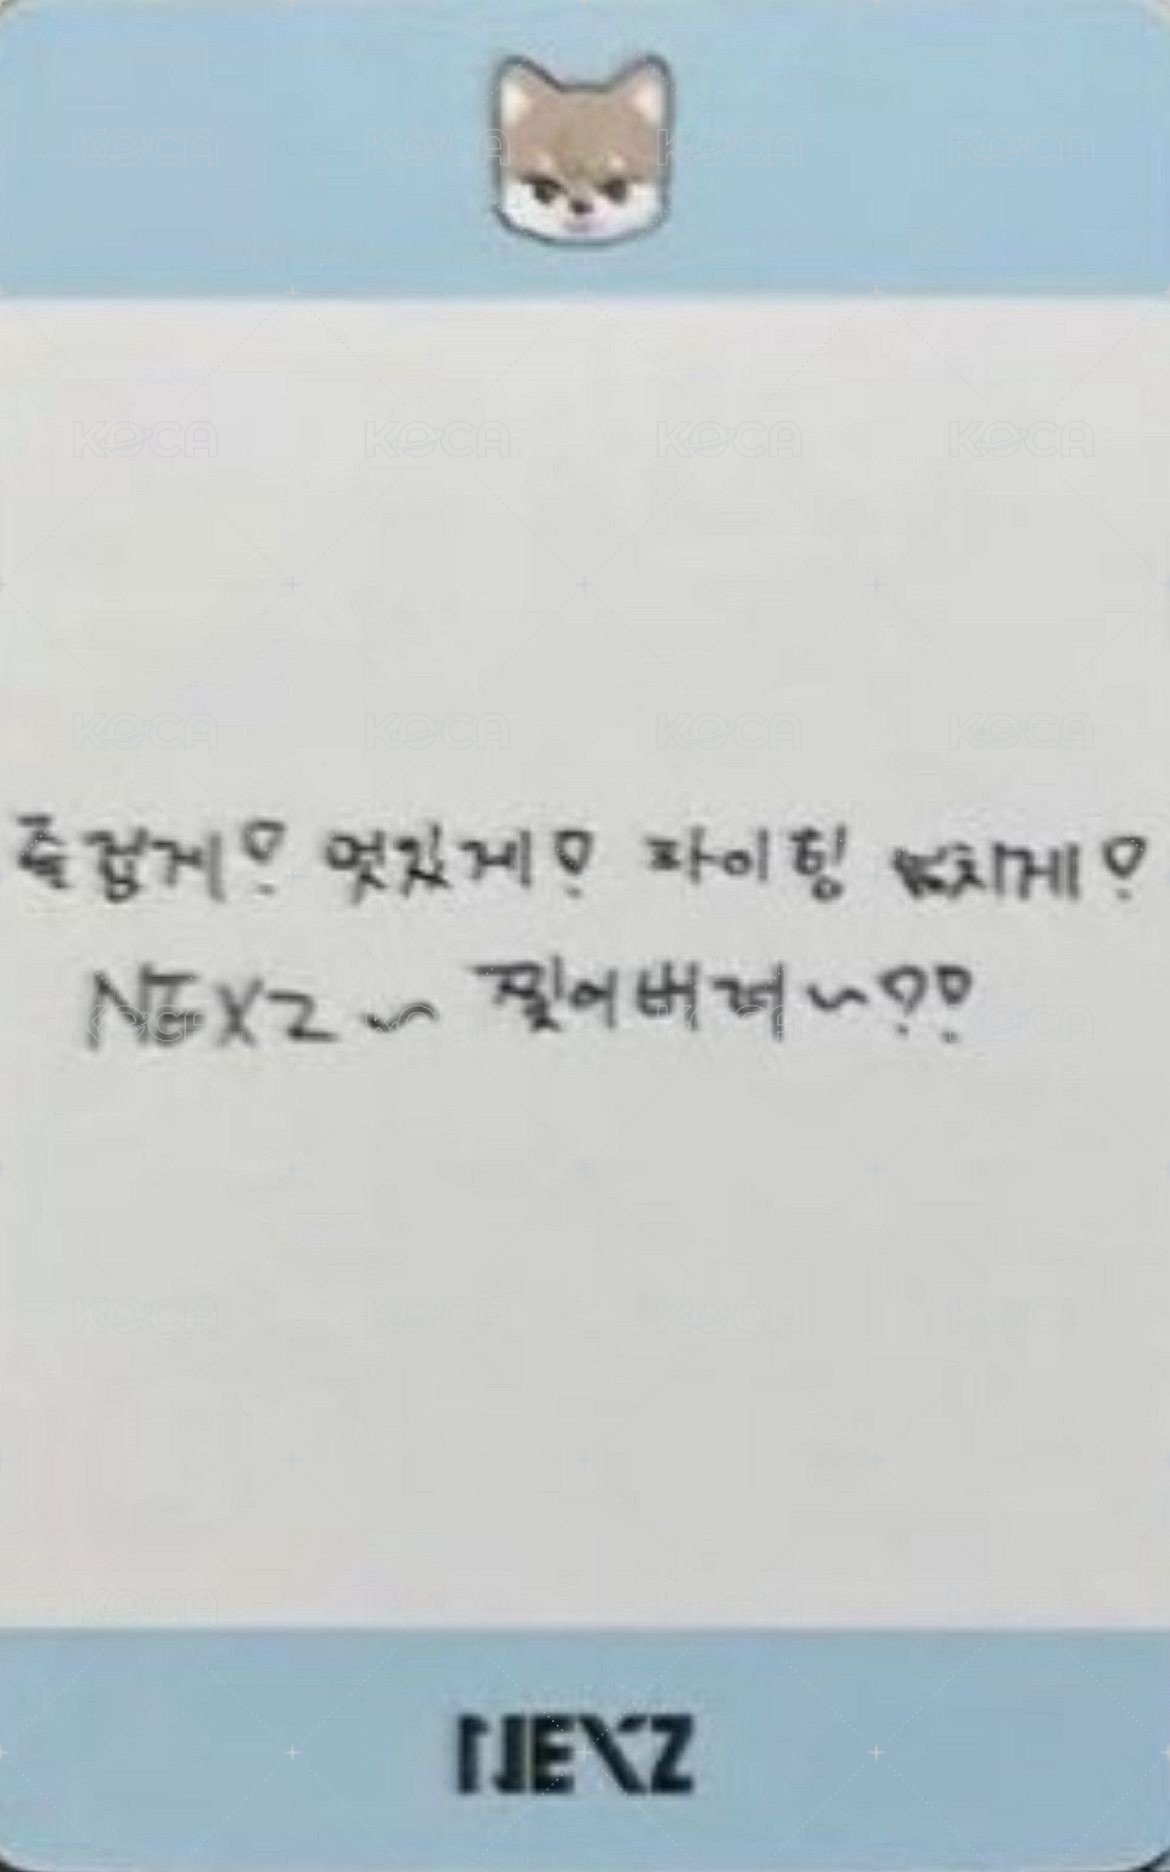 즐겁게! 멋있게! 파이팅 넘치게!
NEXZ~ 찢어버려~!!
NEXZ